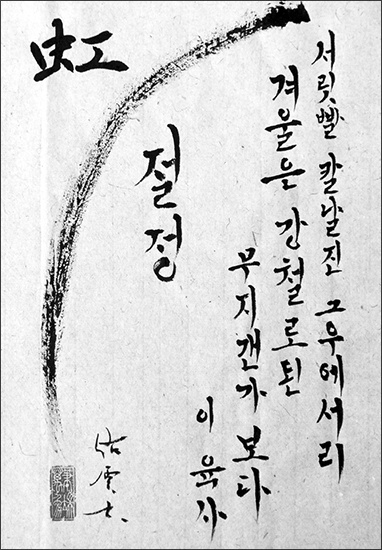 서릿빨 칼날진 그우에서리
겨울은 강철로된
무지갠가 보다
이육사
절정
虹